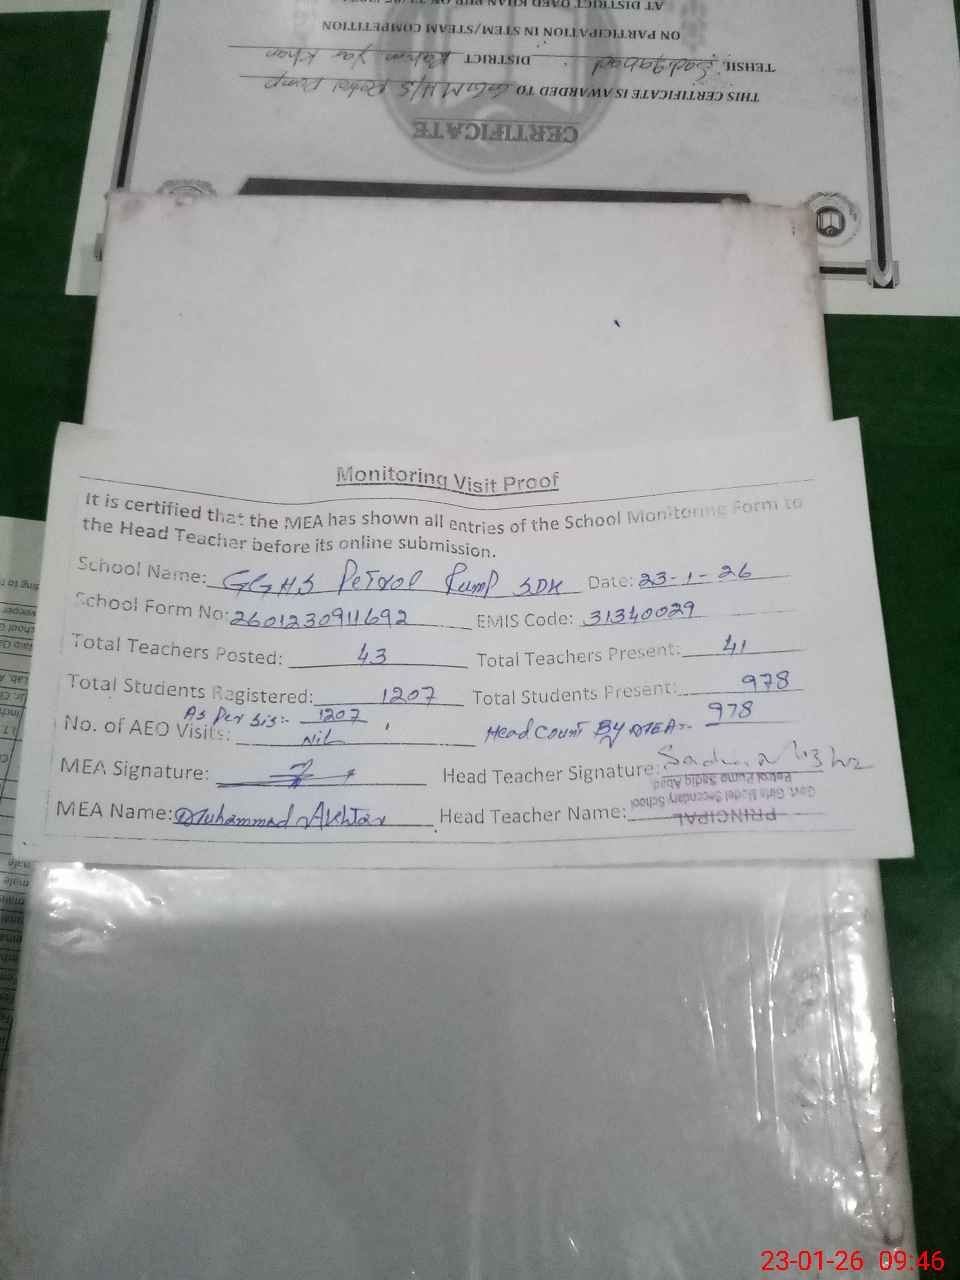 AT DISTRICT
ON PARTICIPATION IN STEM/STEAM COMPETITION
TEHSIL Sadiqabad DISTRICT Rahim Yar Khan
THIS CERTIFICATE IS AWARDED TO GGMH/S Petrol Pump
CERTIFICATE
Monitoring Visit Proof
It is certified that the MEA has shown all entries of the School Monitoring Form to
the Head Teacher before its online submission.
School Name: GGHS Petrol Pump SDK Date: 23-1-26
School Form No: 2601230911692 EMIS Code: 31340029
Total Teachers Posted: 43 Total Teachers Present: 41
Total Students Registered: 1207 Total Students Present: 978
As Per Sis:- 1207 Head Count By MEA:- 978
No. of AEO Visits: Nil
MEA Signature: Head Teacher Signature:
MEA Name: Muhammad Akhtar Head Teacher Name:
PRINCIPAL
Govt. Girls Model Secondary School
Petrol Pump Sadiq Abad
23-01-26 09:46